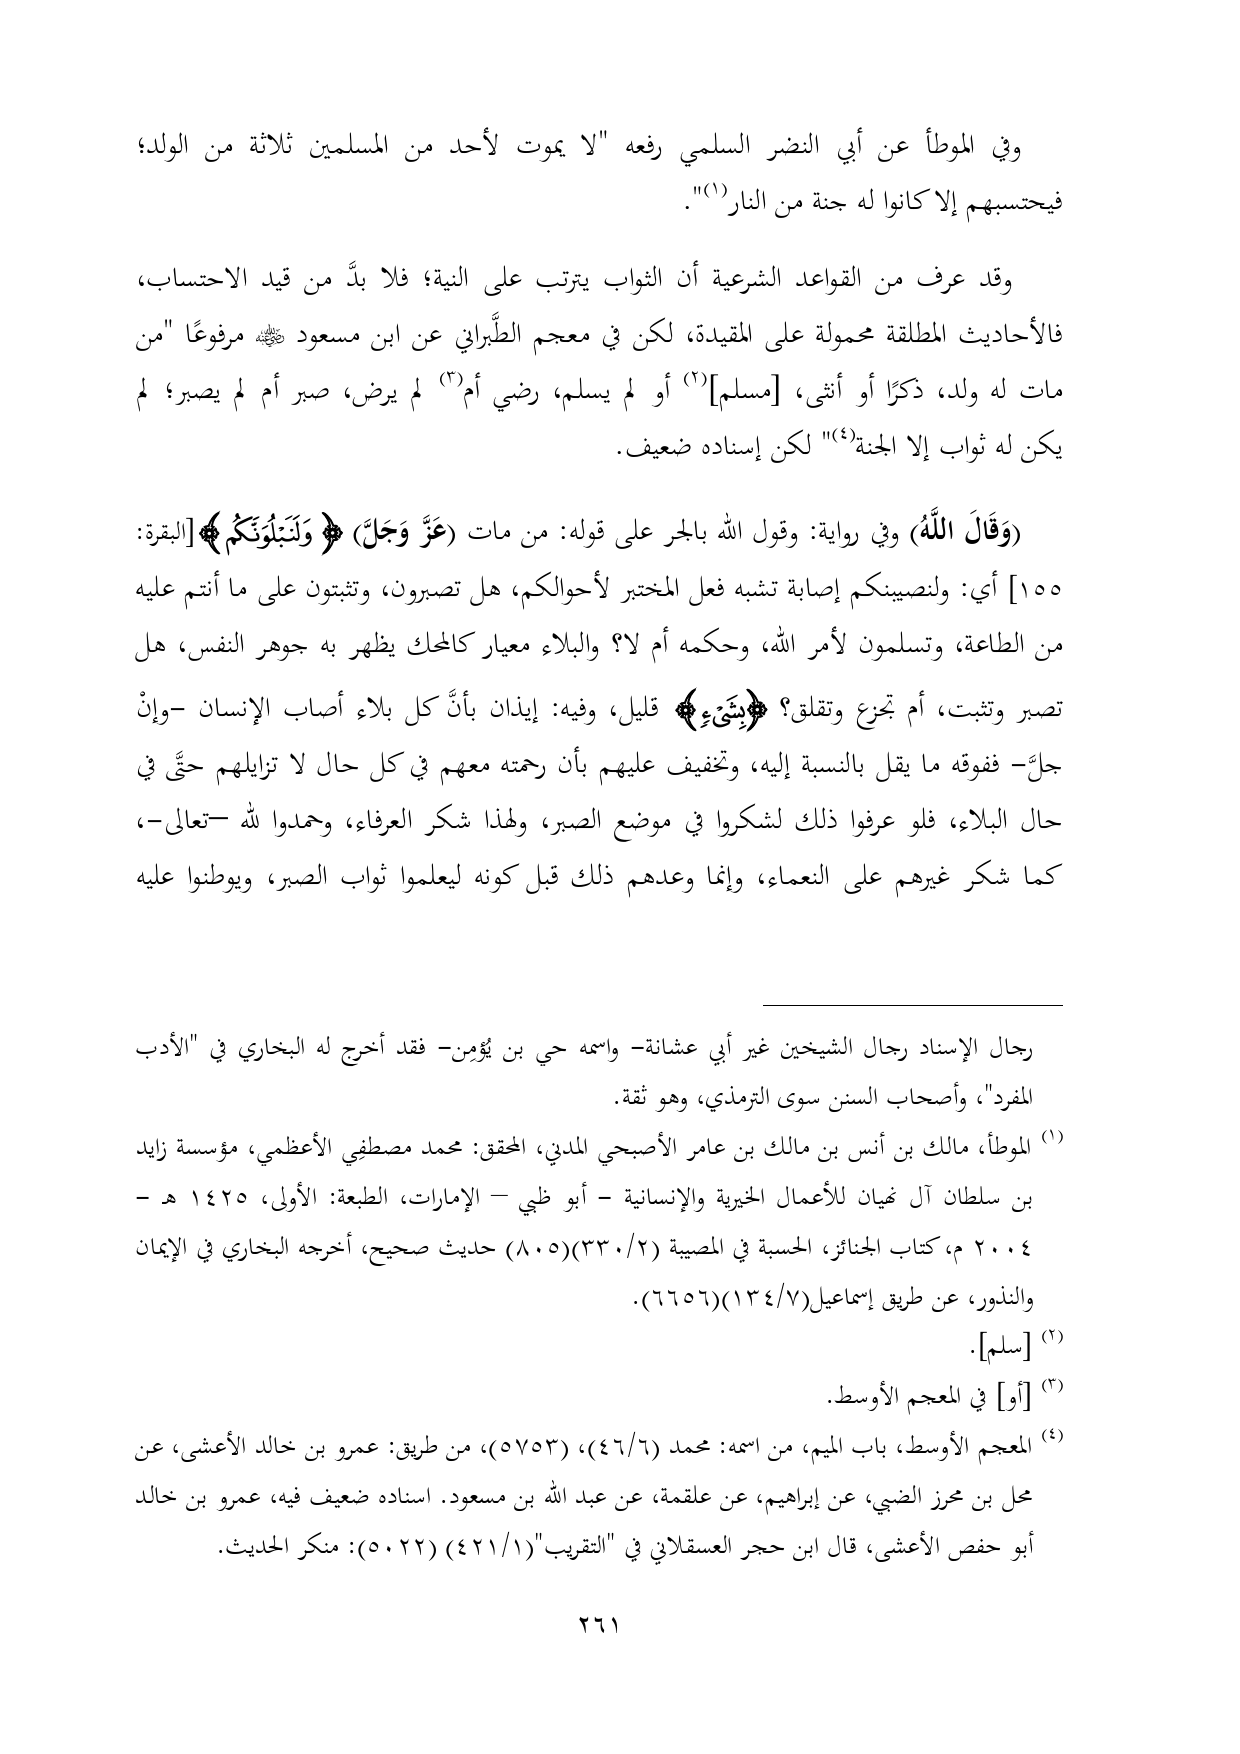 وفي الموطأ عن أبي النضر السلمي رفعه "لا يموت لأحد من المسلمين ثلاثة من الولد؛
فيحتسبهم إلا كانوا له جنة من النار(١)".
وقد عرف من القواعد الشرعية أن الثواب يترتب على النية؛ فلا بدَّ من قيد الاحتساب،
فالأحاديث المطلقة محمولة على المقيدة، لكن في معجم الطَّبراني عن ابن مسعود رضي الله عنه مرفوعًا "من
مات له ولد، ذكرًا أو أنثى، [مسلم](٢) أو لم يسلم، رضي أم(٣) لم يرض، صبر أم لم يصبر؛ لم
يكن له ثواب إلا الجنة(٤)" لكن إسناده ضعيف.
(وَقَالَ اللَّهُ) وفي رواية: وقول الله بالجر على قوله: من مات (عَزَّ وَجَلَّ) ﴿ وَلَنَبْلُوَنَّكُم ﴾ [البقرة:
١٥٥] أي: ولنصيبنكم إصابة تشبه فعل المختبر لأحوالكم، هل تصبرون، وتثبتون على ما أنتم عليه
من الطاعة، وتسلمون لأمر الله، وحكمه أم لا؟ والبلاء معيار كالمحك يظهر به جوهر النفس، هل
تصبر وتثبت، أم تجزع وتقلق؟ ﴿بِشَىْءٍ﴾ قليل، وفيه: إيذان بأنَّ كل بلاء أصاب الإنسان –وإنْ
جلَّ– ففوقه ما يقل بالنسبة إليه، وتخفيف عليهم بأن رحمته معهم في كل حال لا تزايلهم حتَّى في
حال البلاء، فلو عرفوا ذلك لشكروا في موضع الصبر، ولهذا شكر العرفاء، وحمدوا لله –تعالى–،
كما شكر غيرهم على النعماء، وإنما وعدهم ذلك قبل كونه ليعلموا ثواب الصبر، ويوطنوا عليه
رجال الإسناد رجال الشيخين غير أبي عشانة– واسمه حي بن يُؤمِن– فقد أخرج له البخاري في "الأدب
المفرد"، وأصحاب السنن سوى الترمذي، وهو ثقة.
(١) الموطأ، مالك بن أنس بن مالك بن عامر الأصبحي المدني، المحقق: محمد مصطفي الأعظمي، مؤسسة زايد
بن سلطان آل نهيان للأعمال الخيرية والإنسانية – أبو ظبي – الإمارات، الطبعة: الأولى، ١٤٢٥ هـ –
٢٠٠٤ م، كتاب الجنائز، الحسبة في المصيبة (٣٣٠/٢)(٨٠٥) حديث صحيح، أخرجه البخاري في الإيمان
والنذور، عن طريق إسماعيل(١٣٤/٧)(٦٦٥٦).
(٢) [سلم].
(٣) [أو] في المعجم الأوسط.
(٤) المعجم الأوسط، باب الميم، من اسمه: محمد (٤٦/٦)، (٥٧٥٣)، من طريق: عمرو بن خالد الأعشى، عن
محل بن محرز الضبي، عن إبراهيم، عن علقمة، عن عبد الله بن مسعود. اسناده ضعيف فيه، عمرو بن خالد
أبو حفص الأعشى، قال ابن حجر العسقلاني في "التقريب"(٤٢١/١) (٥٠٢٢): منكر الحديث.
٢٦١